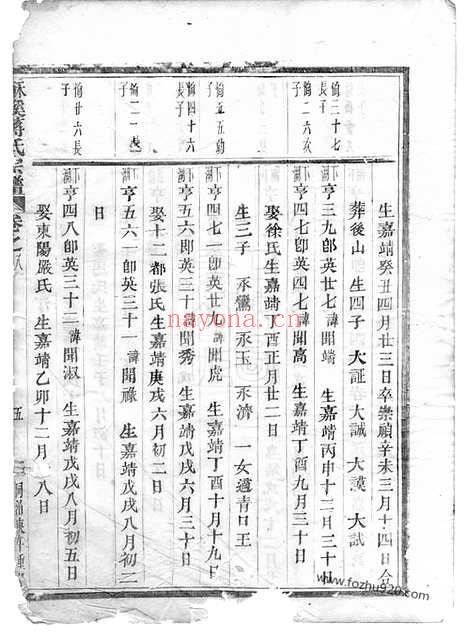 生嘉靖癸丑四月廿三日卒崇禎辛未三月十四日合
葬後山 生四子 大証 大誠 大謨 大試
愉三十七長子
亨三九卽英廿七諱聞端 生嘉靖丙申十二月三十日
愉二六次子
亨四七卽英四七諱聞高 生嘉靖丁酉九月三十日
娶徐氏生嘉靖丁酉正月廿二日
生三子 承鸞 承玉 承濟 一女適青口王
愉五五幼子
亨四七一卽英廿九諱聞虎 生嘉靖丁酉十月十九日
愉四十六長子
亨五六卽英三十諱聞秀 生嘉靖戊戌六月三十日
娶十二都張氏生嘉靖庚戌六月初二日
愉二二長子
亨五六一卽英三十一諱聞祿 生嘉靖戊戌八月初二
日
愉廿六長子
亨四八卽英三十二諱聞淑 生嘉靖戊戌八月初五日
娶東陽嚴氏 生嘉靖乙卯十二月 八日
溪蔣氏宗譜 卷之八 五
nayona.cn
www.fozhu920.com